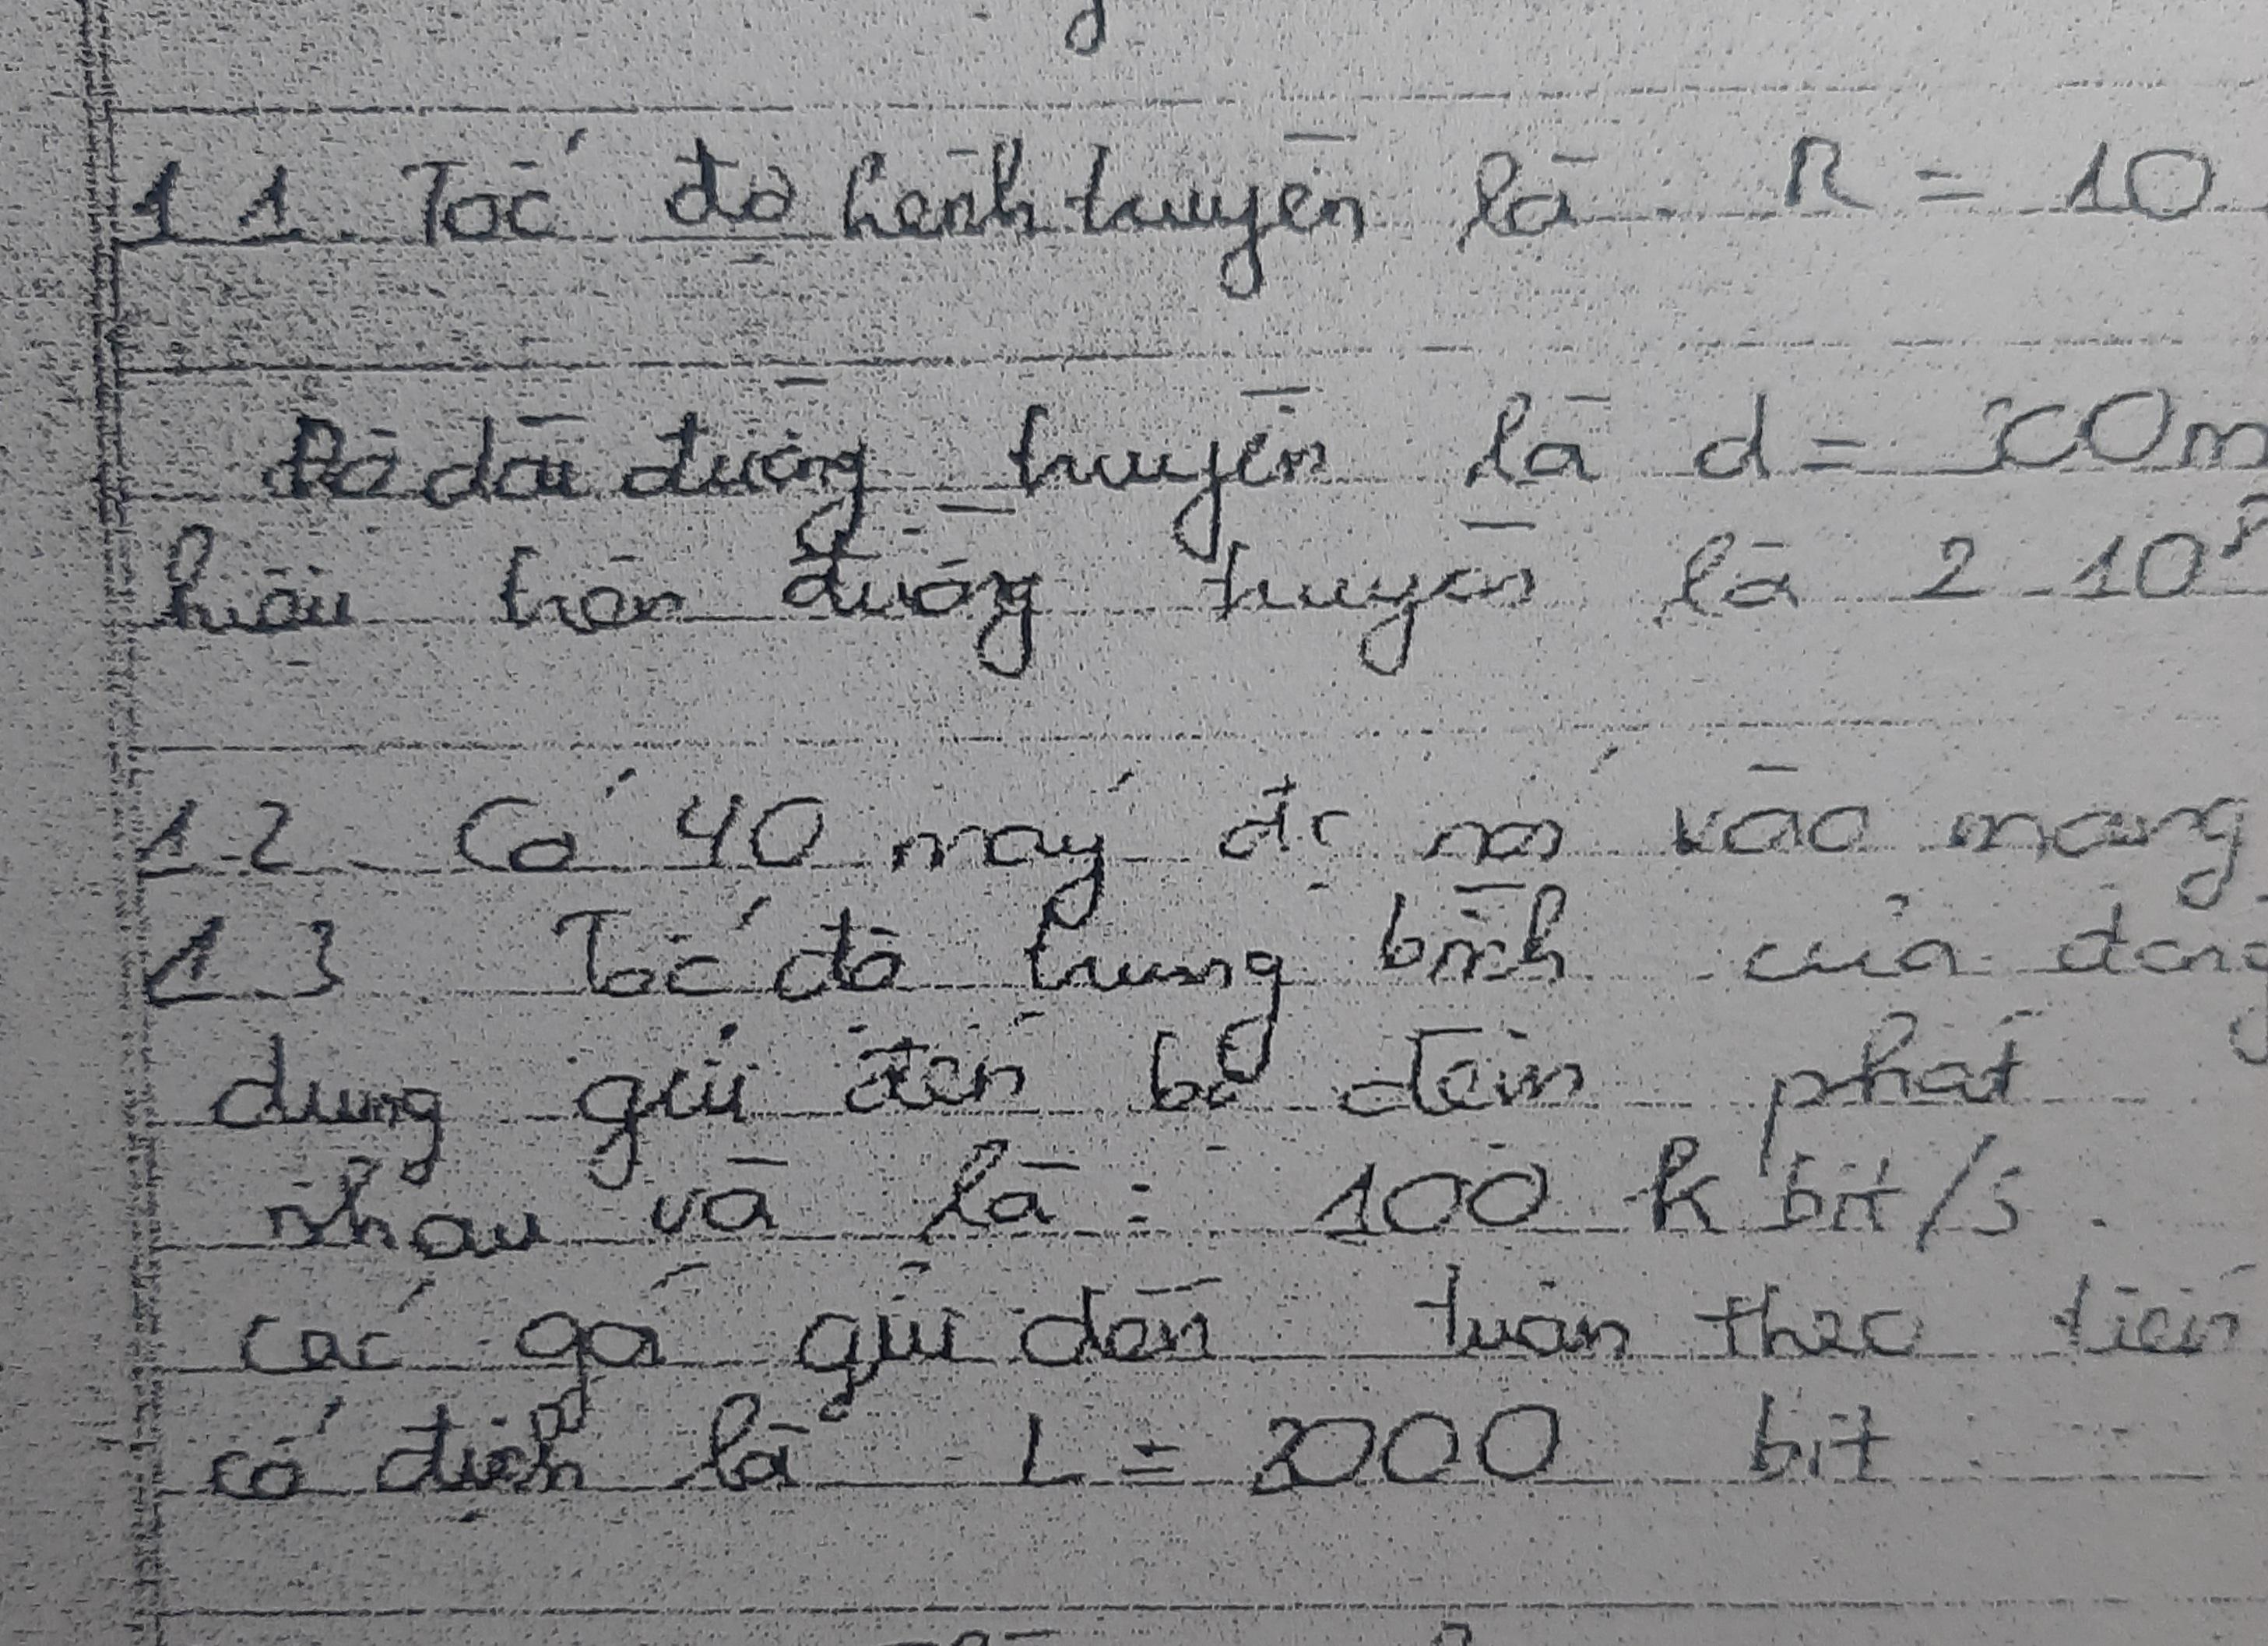 1.1. Tốc độ kênh truyền là R = 10
Độ dài đường truyền là d = 500m
hiệu trên đường truyền là 2.10⁸
1.2. Có 40 máy đc nối vào mạng
1.3 Tốc độ trung bình của dòng
dụng gửi đến bộ đệm phát
nhau và là : 100 kbit/s.
các gói gửi đến tuân theo tiến
cố định là L = 2000 bit